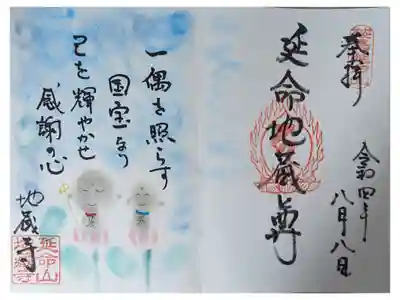 奉拝
延命地蔵尊
令和四年
八月八日
一偶を照らす
国宝なり
己を輝やかせ
感謝の心
地蔵寺
延命山
地蔵寺